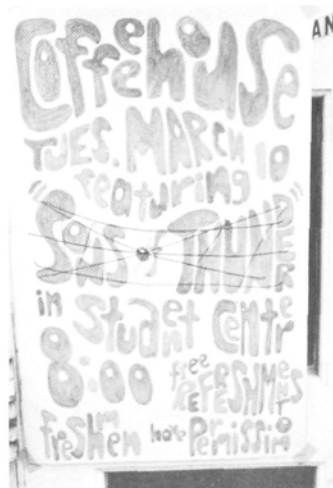 Coffeehouse
TUES. MARCH 10
featuring
"SONS of THUNDER"
in Student Centre
8:00 free REFRESHMENTS
freshmen have Permission
AN